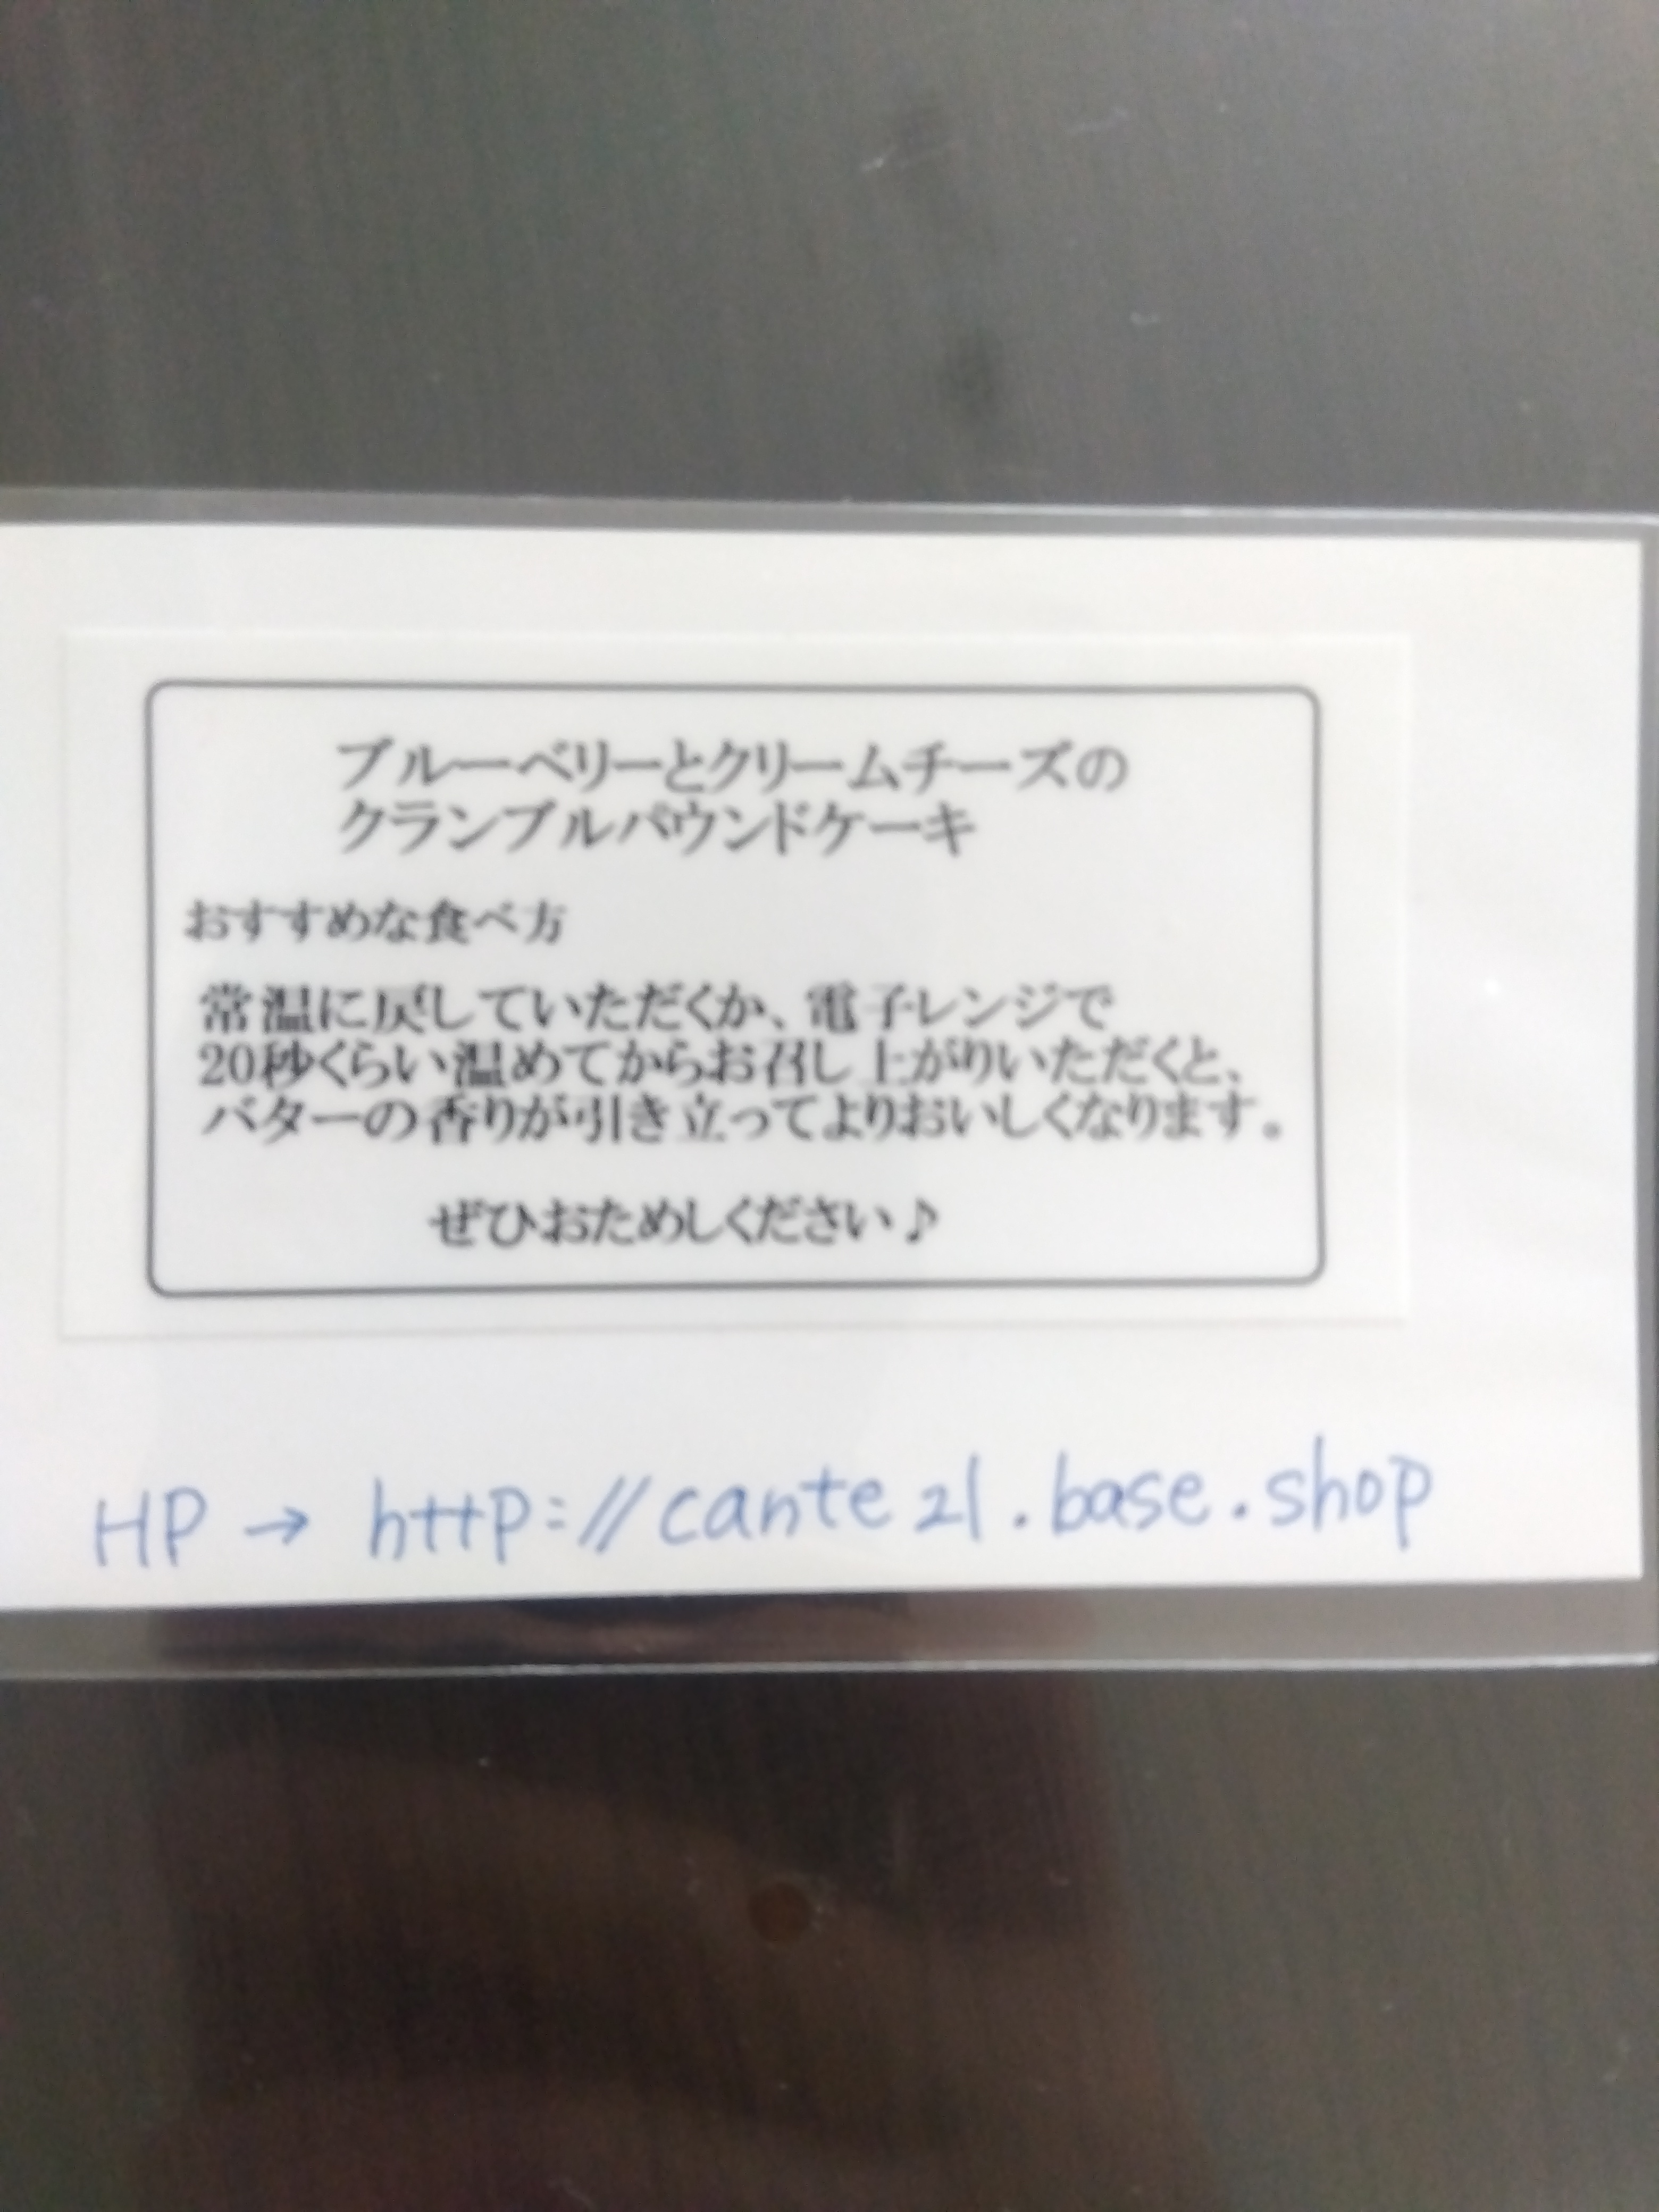 ブルーベリーとクリームチーズの
クランブルパウンドケーキ
おすすめな食べ方
常温に戻していただくか、電子レンジで
20秒くらい温めてからお召し上がりいただくと、
バターの香りが引き立ってよりおいしくなります。
ぜひおためしください♪
HP → http://cante21.base.shop